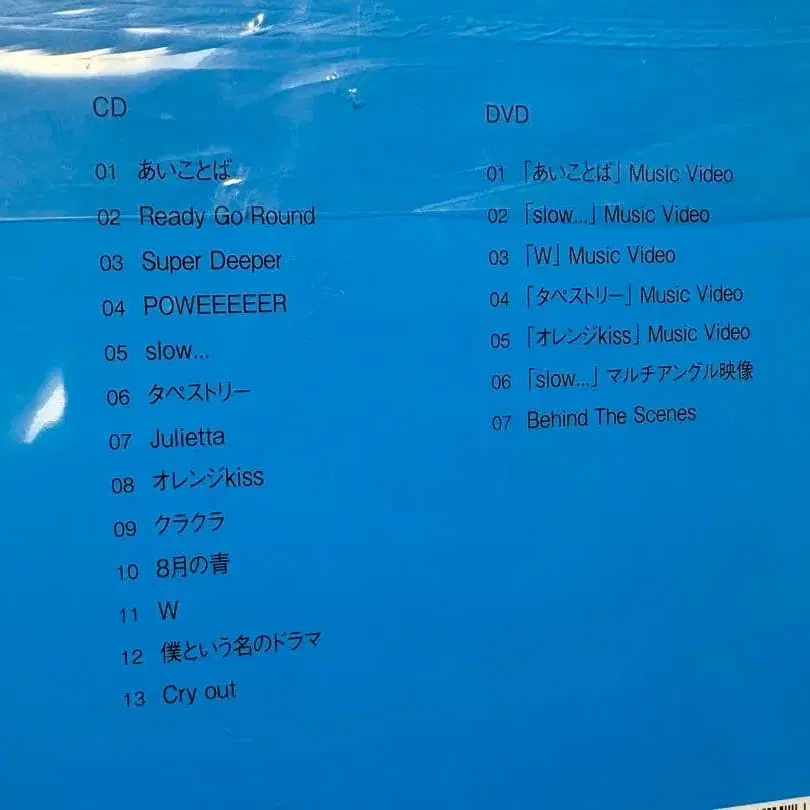 CD
01 あいことば
02 Ready Go Round
03 Super Deeper
04 POWEEEEEER
05 slow...
06 タペストリー
07 Julietta
08 オレンジkiss
09 クラクラ
10 8月の青
11 W
12 僕という名のドラマ
13 Cry out
DVD
01 「あいことば」 Music Video
02 「slow...」 Music Video
03 「W」 Music Video
04 「タペストリー」 Music Video
05 「オレンジkiss」 Music Video
06 「slow...」 マルチアングル映像
07 Behind The Scenes